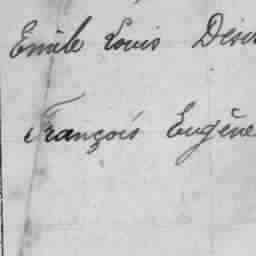 Emile Louis Desir
François Eugène